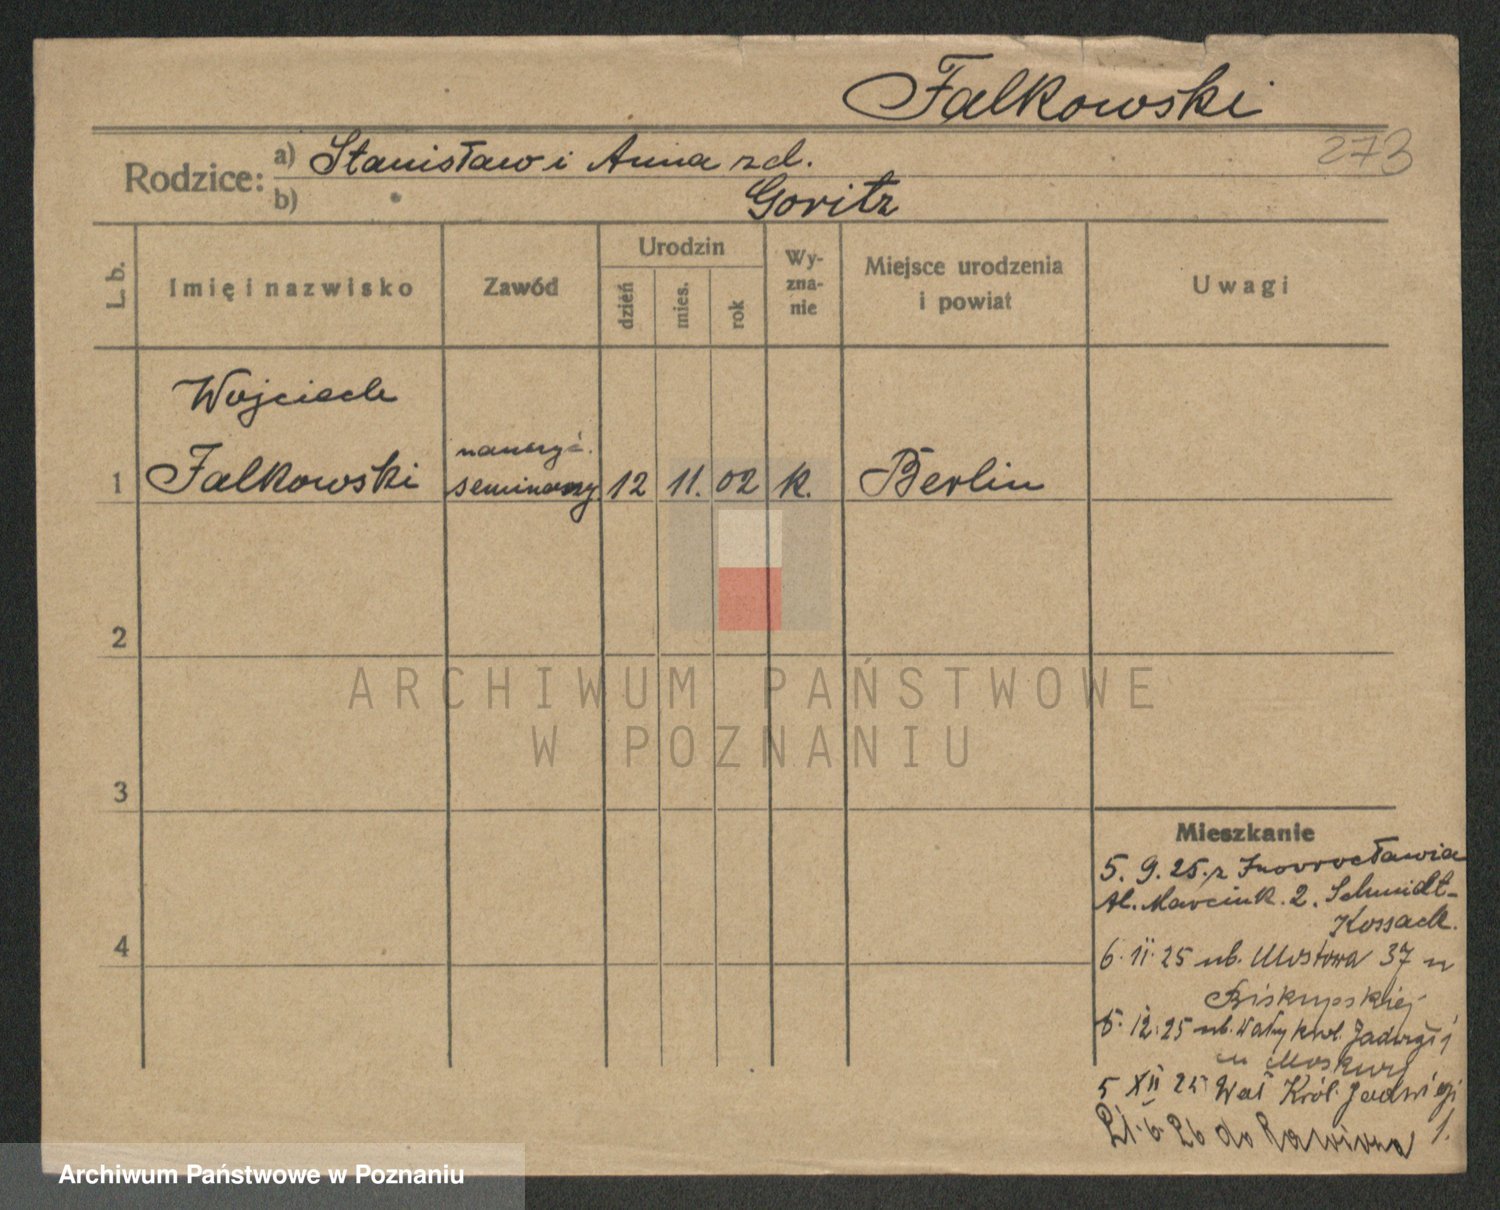 Falkowski
273
Rodzice:
a) Stanisław i Anna zd.
b) Goritz
L. b.
Imię i nazwisko
Zawód
Urodzin
dzień
mies.
rok
Wy-
zna-
nie
Miejsce urodzenia
i powiat
Uwagi
Wojciech
naucyć.
1 Falkowski seminarzy 12 11. 02 k. Berlin
2
3
4
Mieszkanie
5. 9. 25. z Inowrocławia
Al. Marcink. 2. Schmidt-
Kossack.
6. 11. 25 ub. Mostowa 37 u
Biskupskiej
5. 12. 25 ub. Wały król. Jadwigi 1
u
5 XII 25 Wał Król. Jadwigi
1.
21. 6. 26 do
ARCHIWUM PAŃSTWOWE
W POZNANIU
Archiwum Państwowe w Poznaniu